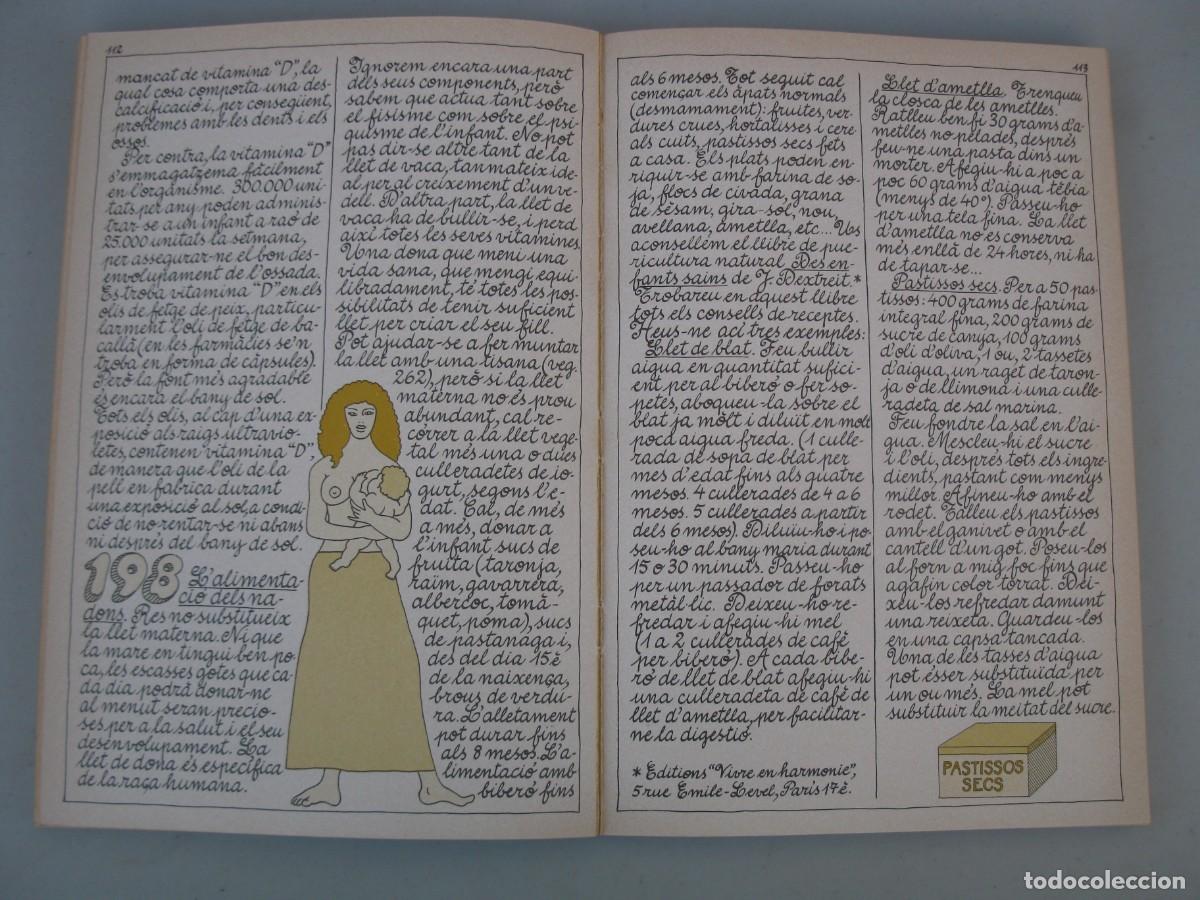 112
mancat de vitamina "D", la
qual cosa comporta una des-
calcificació i, per consegüent,
problemes amb les dents i els
ossos.
Per contra, la vitamina "D"
s'emmagatzema fàcilment
en l'organisme. 300.000 uni-
tats per any poden adminis-
trar-se a un infant a raó de
25.000 unitats la setmana,
per assegurar-ne el bon des-
envolupament de l'ossada.
Es troba vitamina "D" en els
olis de fetge de peix, particu-
larment l'oli de fetge de ba-
callà (en les farmàcies se'n
troba en forma de càpsules).
Però la font més agradable
és encara el bany de sol.
Tots els olis, al cap d'una ex-
posició als raigs ultravio-
letes, contenen vitamina "D",
de manera que l'oli de la
pell en fabrica durant
una exposició al sol, a condi-
ció de no rentar-se ni abans
ni després del bany de sol.
198 L'alimenta-
ció dels na-
dons. Res no substitueix
la llet materna. Ni que
la mare en tingui ben po-
ca, les escasses gotes que ca-
da dia podrà donar-ne
al menut seran precio-
ses per a la salut i el seu
desenvolupament. La
llet de dona és específica
de la raça humana.
Ignorem encara una part
dels seus components, però
sabem que actua tant sobre
el fisisme com sobre el psi-
quisme de l'infant. No pot
pas dir-se altre tant de la
llet de vaca, tanmateix ide-
al per al creixement d'un ve-
dell. D'altra part, la llet de
vaca ha de bullir-se, i perd
així totes les seves vitamines.
Una dona que meni una
vida sana, que mengi equi-
libradament, té totes les pos-
sibilitats de tenir suficient
llet per criar el seu fill.
Pot ajudar-se a fer muntar
la llet amb una tisana (veg.
262), però si la llet
materna no és prou
abundant, cal re-
córrer a la llet vege-
tal més una o dues
culleradetes de io-
gurt, segons l'e-
dat. Cal, de més
a més, donar a
l'infant sucs de
fruita (taronja,
raïm, gavarrera,
albercoc, tomà-
quet, poma), sucs
de pastanaga i,
des del dia 15è
de la naixença,
brous de verdu-
ra. L'alletament
pot durar fins
als 8 mesos. L'a-
limentació amb
biberó fins
113
als 6 mesos. Tot seguit cal
començar els àpats normals
(desmamament): fruites, ver-
dures crues, hortalisses i cere-
als cuits, pastissos secs fets
a casa. Els plats poden en-
riquir-se amb farina de so-
ja, flocs de civada, grana
de sèsam, gira-sol, nou,
avellana, ametlla, etc... Us
aconsellem el llibre de pue-
ricultura natural Des en-
fants sains de J. Dextreit.*
Trobareu en aquest llibre
tots els consells de receptes.
Heus-ne ací tres exemples:
Llet de blat. Feu bullir
aigua en quantitat sufici-
ent per al biberó o fer so-
petes, aboqueu-la sobre el
blat ja mòlt i diluït en molt
poca aigua freda. (1 culle-
rada de sopa de blat per
mes d'edat fins als quatre
mesos. 4 cullerades de 4 a 6
mesos. 5 cullerades a partir
dels 6 mesos). Diluïu-ho i po-
seu-ho al bany maria durant
15 o 30 minuts. Passeu-ho
per un passador de forats
metàl·lic. Deixeu-ho re-
fredar i afegiu-hi mel
(1 a 2 cullerades de cafè
per biberó). A cada bibe-
ró de llet de blat afegiu-hi
una culleradeta de cafè de
llet d'ametlla, per facilitar-
ne la digestió.
* Editions "Vivre en harmonie",
5 rue Emile-Level, Paris 17è.
Llet d'ametlla. Trenqueu
la closca de les ametlles.
Ratlleu ben fi 30 grams d'a-
metlles no pelades, després
feu-ne una pasta dins un
morter. Afegiu-hi a poc a
poc 60 grams d'aigua tèbia
(menys de 40º). Passeu-ho
per una tela fina. La llet
d'ametlla no es conserva
més enllà de 24 hores, ni ha
de tapar-se...
Pastissos secs. Per a 50 pas-
tissos: 400 grams de farina
integral fina, 200 grams de
sucre de canya, 100 grams
d'oli d'oliva, 1 ou, 2 tassetes
d'aigua, un raget de taron-
ja o de llimona i una culle-
radeta de sal marina.
Feu fondre la sal en l'ai-
gua. Mescleu-hi el sucre
i l'oli, després tots els ingre-
dients, pastant com menys
millor. Afineu-ho amb el
rodet. Talleu els pastissos
amb el ganivet o amb el
cantell d'un got. Poseu-los
al forn a mig foc fins que
agafin color torrat. Dei-
xeu-los refredar damunt
una reixeta. Guardeu-los
en una capsa tancada.
Una de les tasses d'aigua
pot ésser substituïda per
un ou més. La mel pot
substituir la meitat del sucre.
PASTISSOS
SECS
todocoleccion